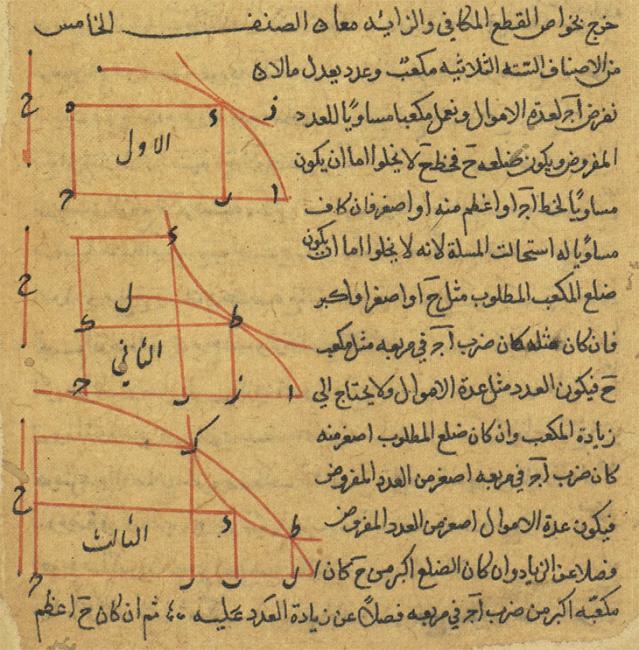 خرج بخواص القطع المكافي والزايد معا الصنف الخامس
من الاصناف الستة الثلاثيه مكعب وعدد يعدل مالا
نفرض اجـ لعدة الاموال ونعمل مكعبا مساويا للعدد
المفروض ويكون ضلعه ح فخط ح لا يخلوا اما ان يكون
مساويا لخط اجـ او اعظم منه او اصغر فان كان
مساويا له استحالت المسلة لانه لا يخلوا اما ان يكون
ضلع المكعب المطلوب مثل ح او اصغر او اكبر
فان كان مثله كان ضرب اجـ في مربعه مثل مكعب
ح فيكون العدد مثل عدة الاموال ولا يحتاج الى
زيادة المكعب وان كان ضلع المطلوب اصغر منه
كان ضرب اجـ في مربعه اصغر من العدد المفروض
فيكون عدة الاموال اصغر من العدد المفروض
فضلا عن الزياده وان كان الضلع اكبر من ح كان
مكعبه اكبر من ضرب اجـ في مربعه فضلا عن زيادة العدد عليه ثم ان كان ح اعظم
الاول
ح
ه
د
ز
جـ
ب
ا
الثاني
ح
د
ل
ك
ط
جـ
ب
ز
ا
الثالث
ح
ك
د
ط
جـ
ا